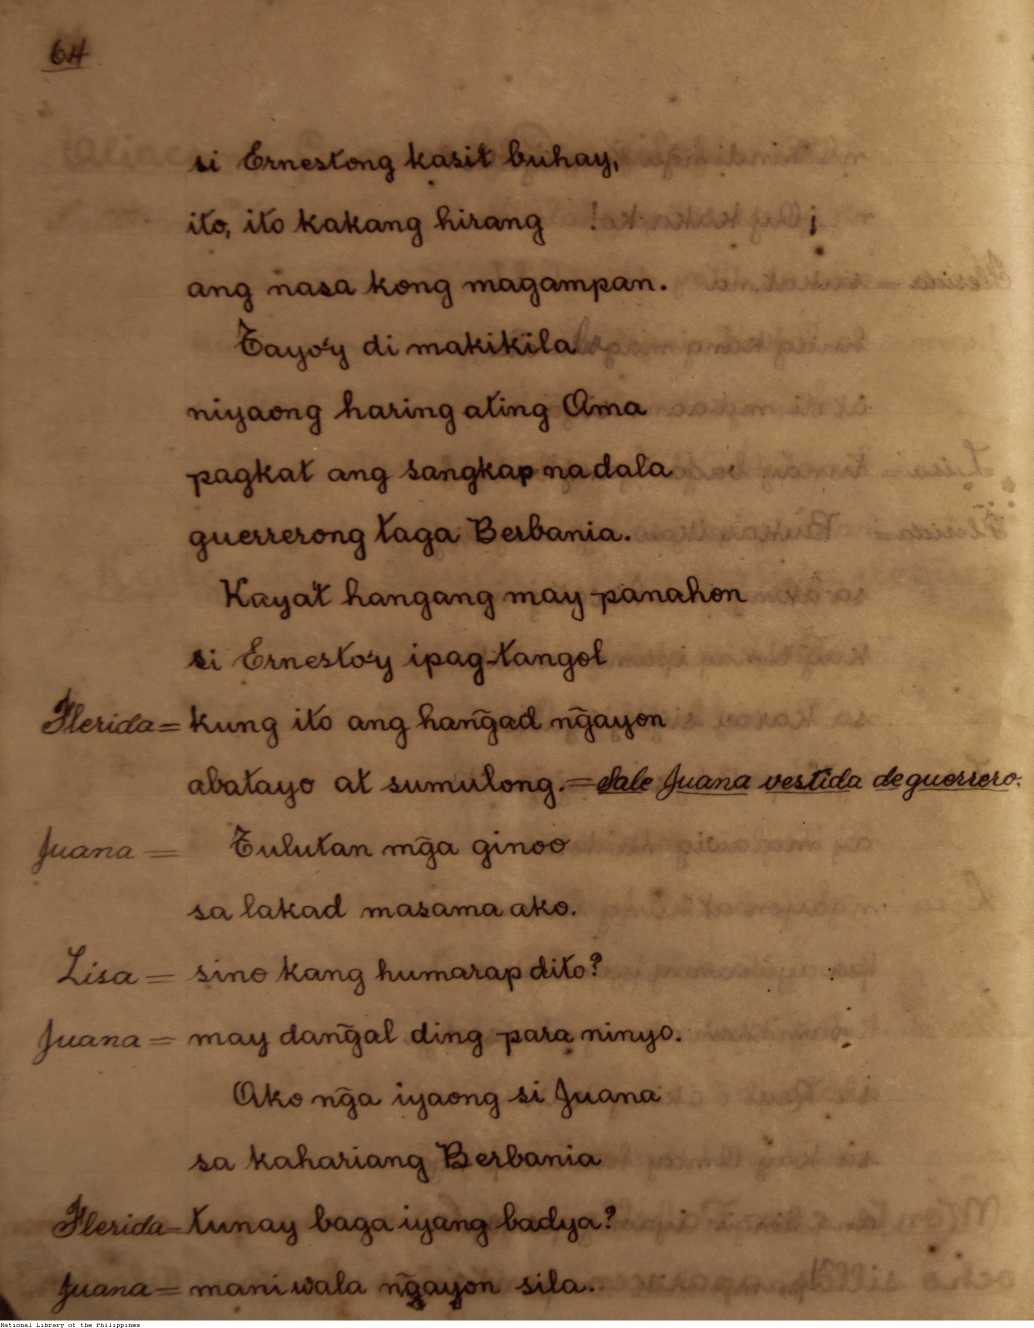 64
si Ernestong kasit buhay,
ito, ito kakang hirang
ang nasa kong magampan.
Tayo'y di makikila
niyaong haring ating Ama
pagkat ang sangkap na dala
guerrerong taga Berbania.
Kaya't hangang may panahon
si Ernesto'y ipag-tangol
Flerida = kung ito ang hang̃ad ng̃ayon
abatayo at sumulong. = Sale Juana vestida de guerrero.
Juana = Tulutan mg̃a ginoo
sa lakad masama ako.
Lisa = sino kang humarap dito?
Juana = may dang̃al ding para ninyo.
Ako ng̃a iyaong si Juana
sa kahariang Berbania
Flerida = tunay baga iyang badya?
Juana = maniwala ng̃ayon sila.
National Library of the Philippines